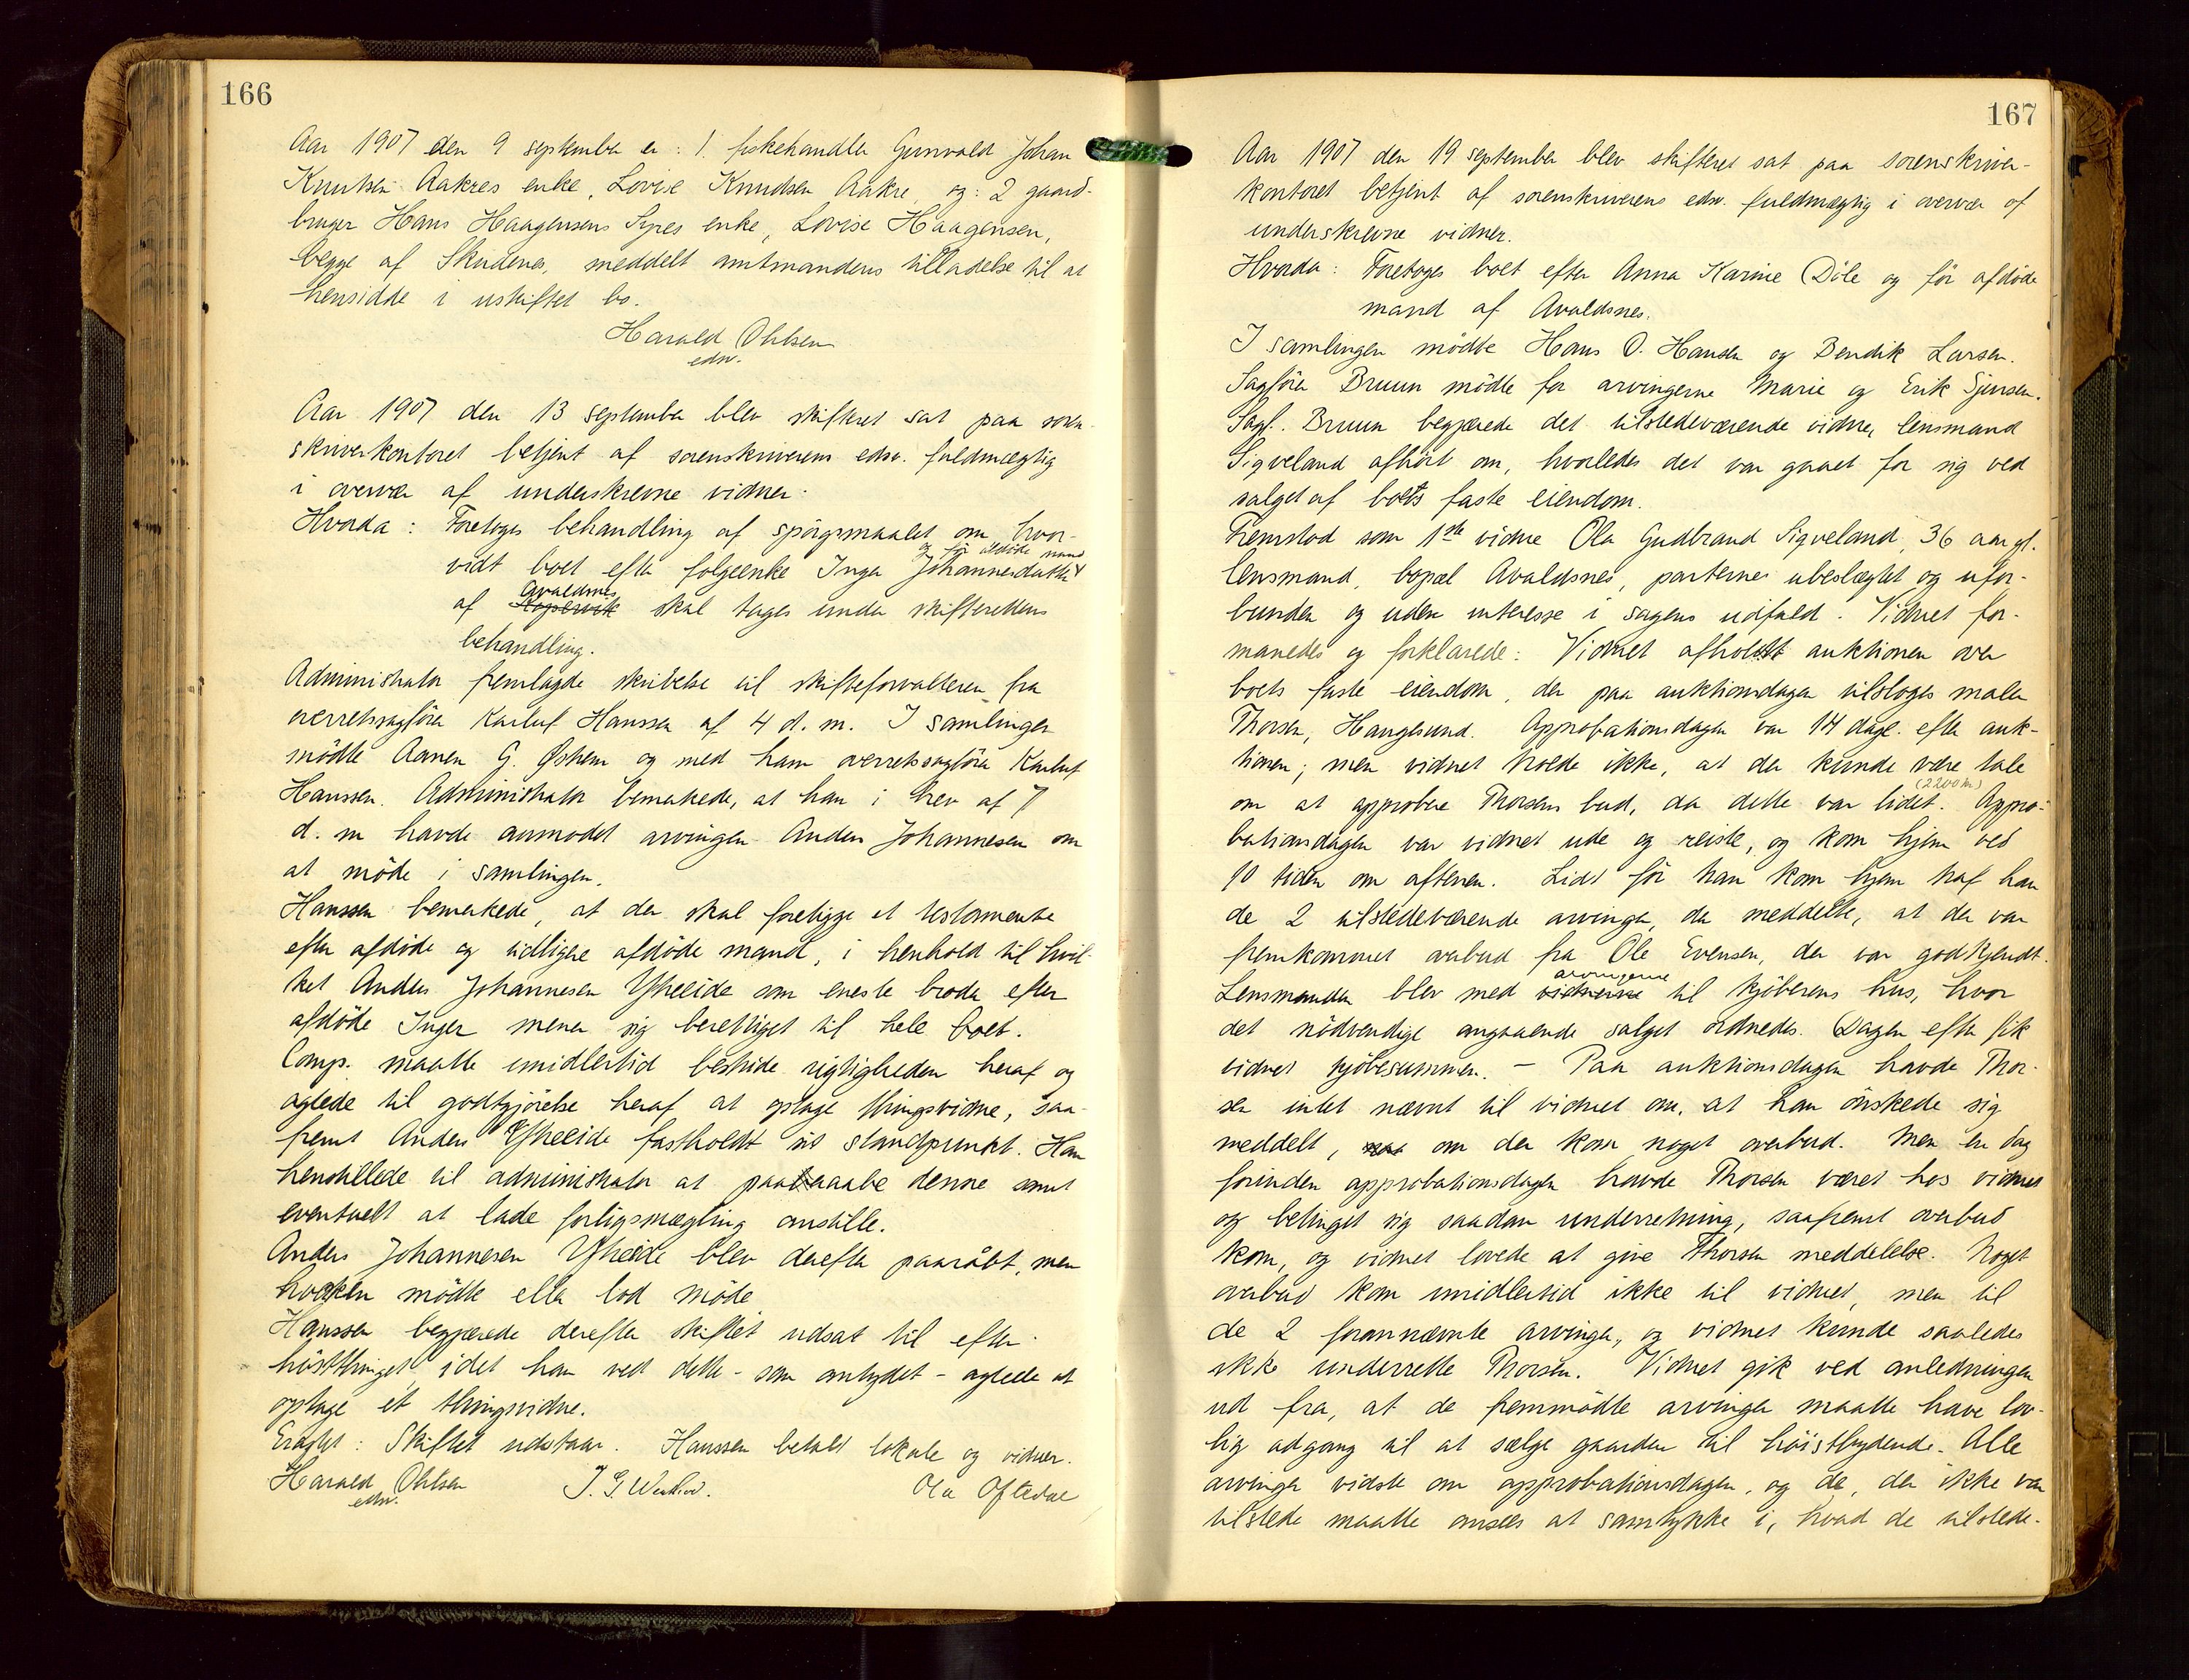 166
Aar 1907 den 9 september er: 1. fiskehandler Gunvald Johan
Knutsen Aakres enke, Lovise Knudsen Aakre og: 2 gaard-
bruger Hans Haagensens Syres enke, Lovise Haagensen,
begge af Skudenes, meddelt amtmandens tilladelse til at
hensidde i uskiftet bo.
Harald Ohlsen
edsv.
Aar 1907 den 13 september blev skifteret sat paa soren-
skriverkontoret betjent af sorenskriverens edsv. fuldmægtig
i overvær af underskrevne vidner.
Hvorda: Foretoges behandling af spörgsmaalet om hvor-
og för afdöde mand
vidt boet efter folgeenke Inger Johannesdatter
Avaldsnes
af Kopervik skal tages under skifterettens
behandling.
Administrator fremlagde skrivelse til skifteforvalteren fra
overretssagförer Karluf Hanssen af 4 d. m. I samlingen
mödte Aanen G. Östhem og med ham overretssagförer Karluf
Hanssen. Administrator bemerkede, at han i brev af 7
d. m havde anmodet arvingen Anders Johannesen om
at möde i samlingen.
Hanssen bemerkede, at der skal foreligge et testamente
efter afdöde og tidligere afdöde mand, i henhold til hvil-
ket Anders Johannesen Ytreeide som eneste broder efter
afdöde Inger mener sig berettiget til hele boet.
Comp. maatte imidlertid bestride rigtigheden heraf og
agtede til godtgjörelse heraf at optage thingsvidne, saa-
fremt Anders Ytreeide fastholdt sit standpunkt. Han
henstillede til administrator at paaraabe denne samt
eventuelt at lade forligsmægling anstille.
Anders Johannesen Ytreeide blev derefter paaråbt, men
hverken mödte eller lod möde.
Hanssen begjærede derefter skiftet udsat til efter
hösttinget idet han ved dette - som antydet - agtede at
optage et thingsvidne.
Eragtet: Skiftet udstaar. Hanssen betalt lokale og vidner.
Harald Ohlsen
edsv.
Ola Oftedal
167
Aar 1907 den 19 september blev skifteret sat paa sorenskriver-
kontoret betjent af sorenskriverens edsv. fuldmægtig i overvær af
underskrevne vidner.
Hvorda: Foretoges boet efter Anna Karine Döle og för afdöde
mand af Avaldsnes.
I samlingen mödte Hans O. Hansen og Bendik Larsen.
Sagförer Bruun mödte for arvingerne Marie og Erik Sjursen.
Sagf. Bruun begjærede det tilstedeværende vidne, lensmand
Sigveland afhört om, hvorledes det var gaaet for sig ved
salget af boets faste eiendom.
Fremstod som 1ste vidne Ola Gudbrand Sigveland, 36 aar gl.
lensmand, bopæl Avaldsnes, parternes ubeslægtet og ufor-
bunden og uden interesse i sagens udfald. Vidnet for-
manedes og forklarede: Vidnet afholdt auktionen over
boets faste eiendom, der paa auktionsdagen tilsloges maler
Thorsen, Haugesund. Approbationsdagen var 14 dage efter auk-
tionen; men vidnet troede ikke, at der kunde være tale
(2200 m)
om at approbere Thorsens bud, da dette var lidet. Appro-
bationsdagen var vidnet ude og reiste, og kom hjem ved
10 tiden om aftenen. Lidt för han kom hjem traf han
de 2 tilstedeværende arvinger, der meddelte, at der var
fremkommet overbud fra Ole Evensen, der var godkjendt.
arvingerne
Lensmanden blev med vidnerne til kjöberens hus, hvor
det nödvendige angaaende salget ordnedes. Dagen efter fik
vidnet kjöbesummen. - Paa auktionsdagen havde Thor-
sen intet nævnt til vidnet om, at han önskede sig
meddelt, om der kom noget overbud. Men en dag
forinden approbationsdagen havde Thorsen været hos vidnet
og betinget sig saadan underretning, saafremt overbud
kom, og vidnet lovede at give Thorsen meddelelse. Noget
overbud kom imidlertid ikke til vidnet, men til
de 2 forannævnte arvinger, og vidnet kunde saaledes
ikke underrette Thorsen. Vidnet gik ved anledningen
ud fra, at de fremmödte arvinger maatte have lov-
lig adgang til at sælge gaarden til höistbydende. Alle
arvinger vidste om approbationsdagen, og de, der ikke var
tilstede maatte ansees at samtykke i, hvad de tilstede-